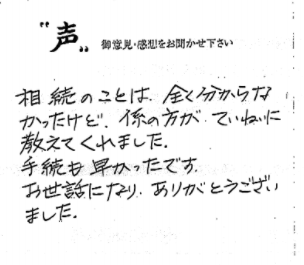 "声" 御意見・感想をお聞かせ下さい
相続のことは、全く分からな
かったけど、係の方が、ていねいに
教えてくれました.
手続も早かったです.
お世話になり、ありがとうござい
ました.